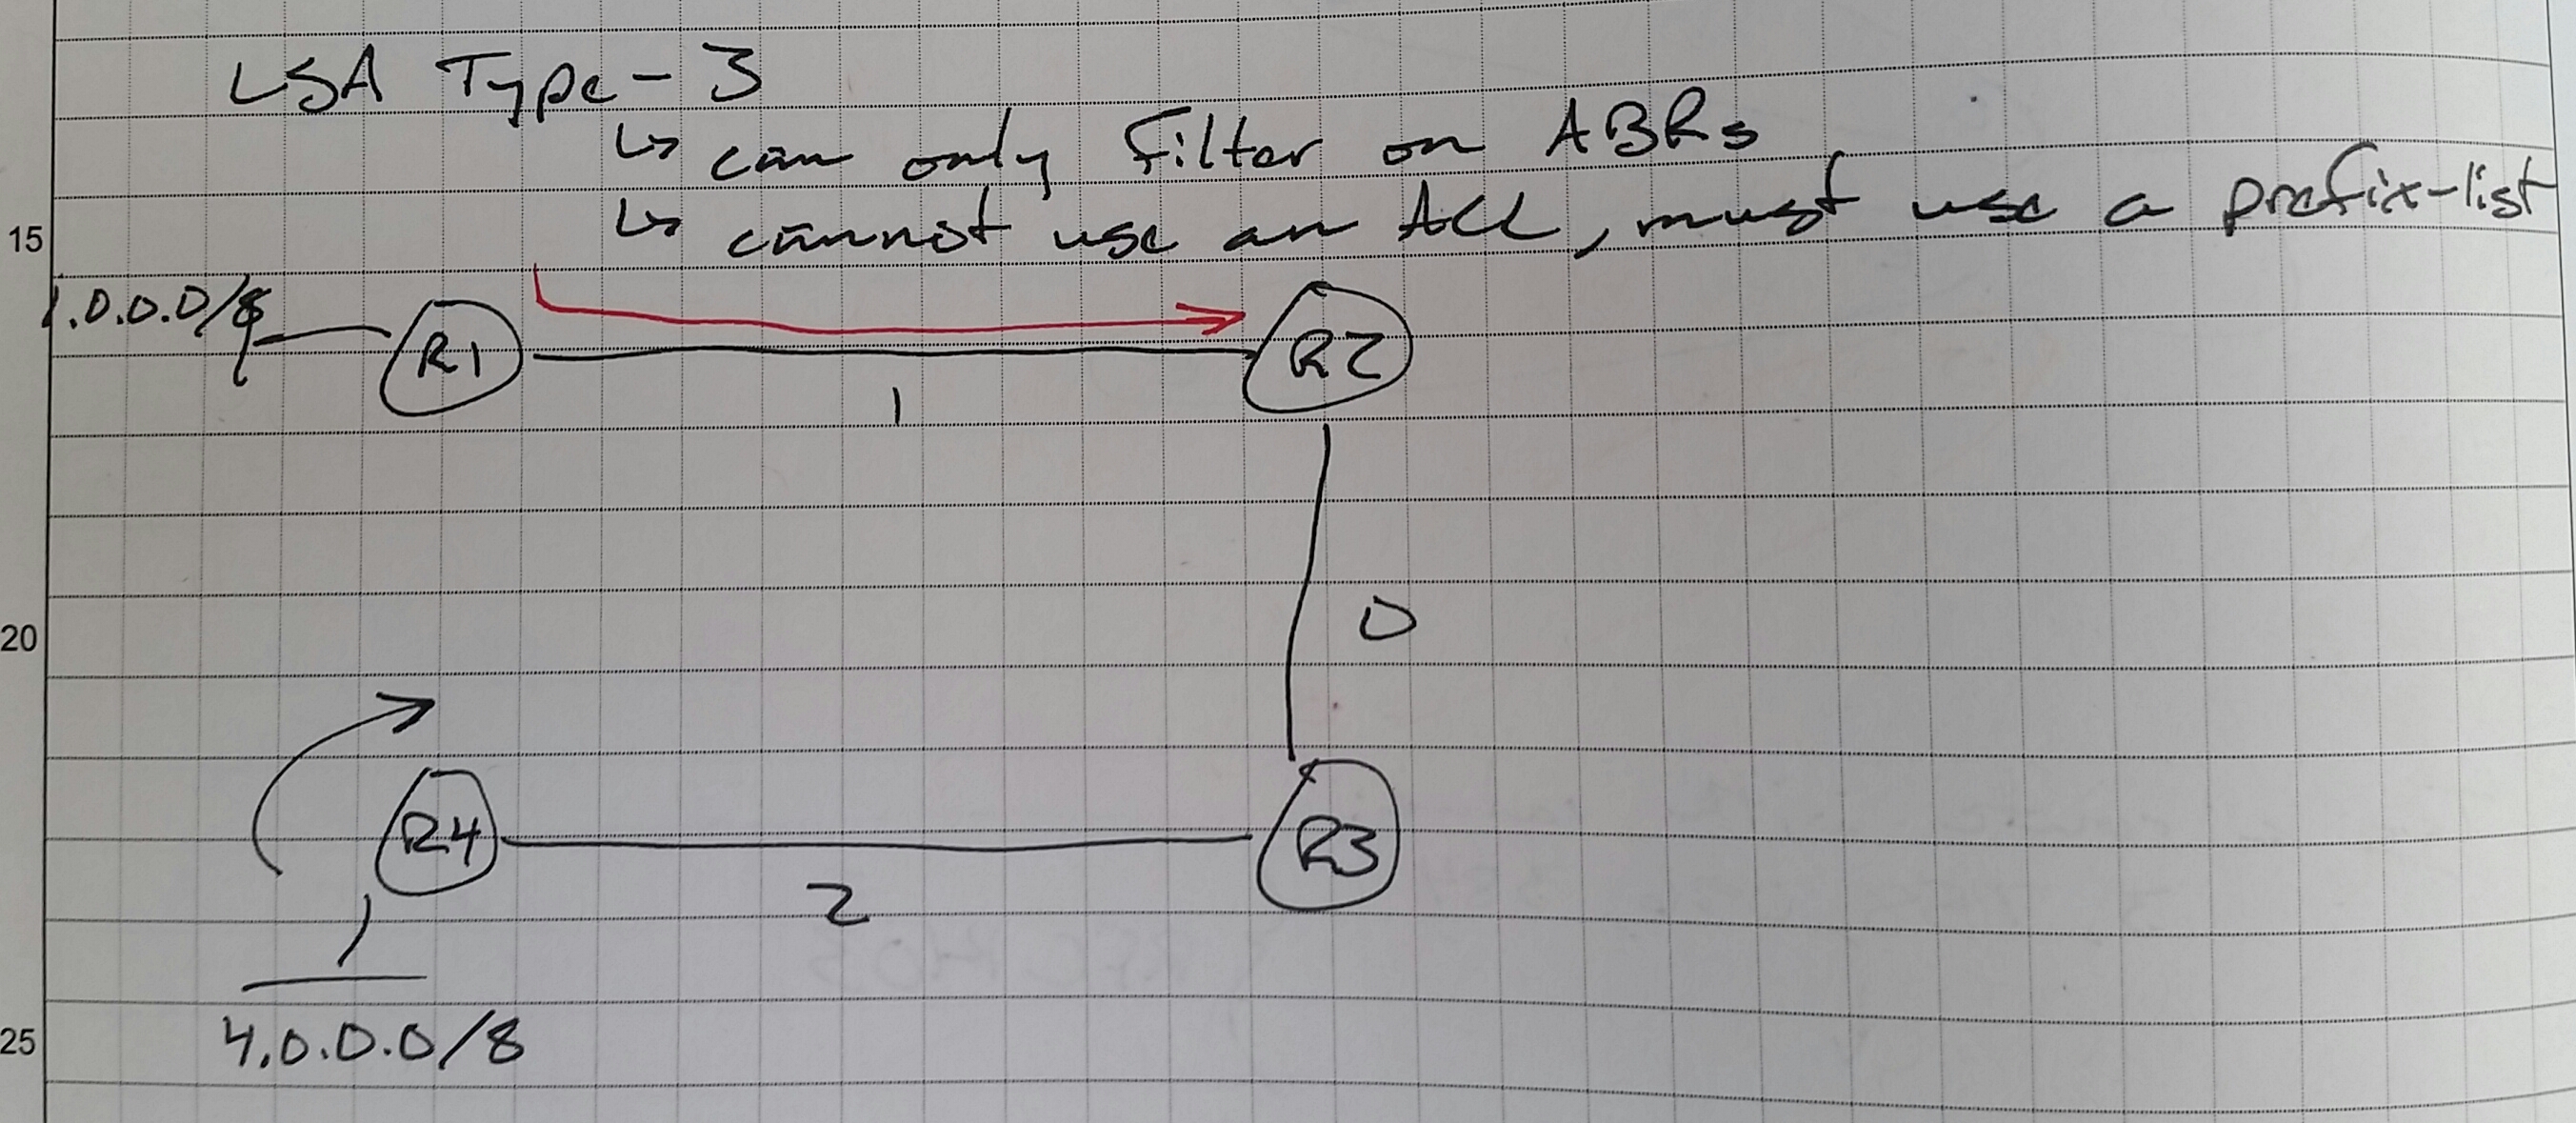 LSA Type-3
↳ can only filter on ABRs
↳ cannot use an ACL, must use a prefix-list
15
1.0.0.0/8
R1
R2
1
20
0
R4
R3
2
4.0.0.0/8
25